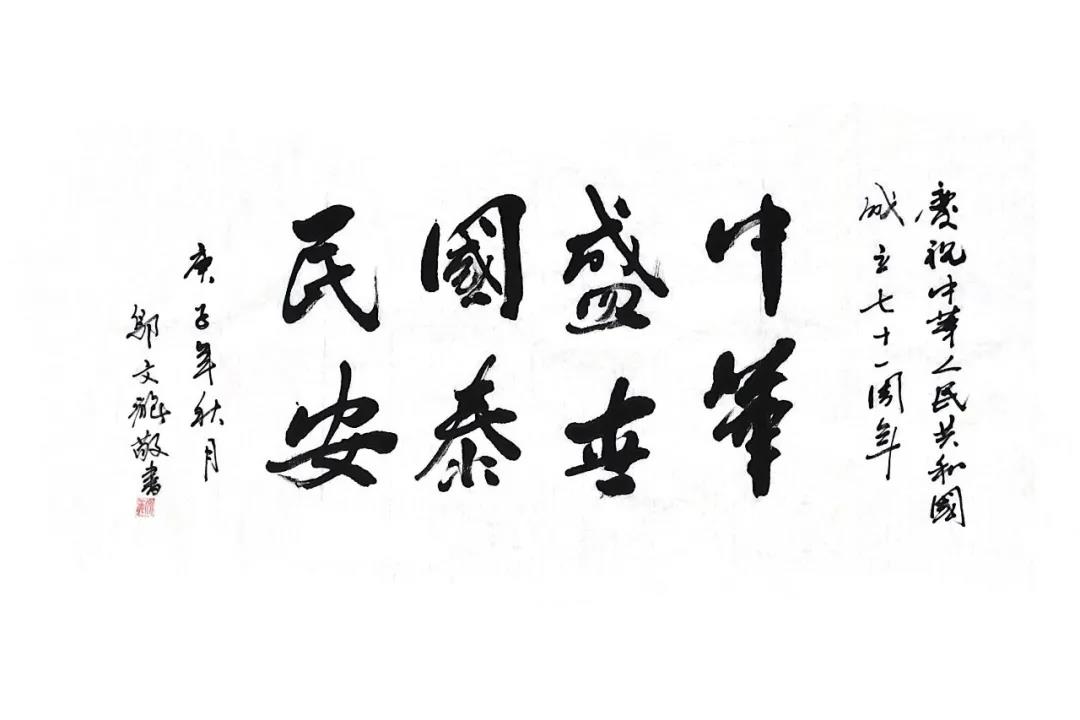 慶祝中華人民共和國
成立七十一周年
中華
盛世
國泰
民安
庚子年秋月
文敬書